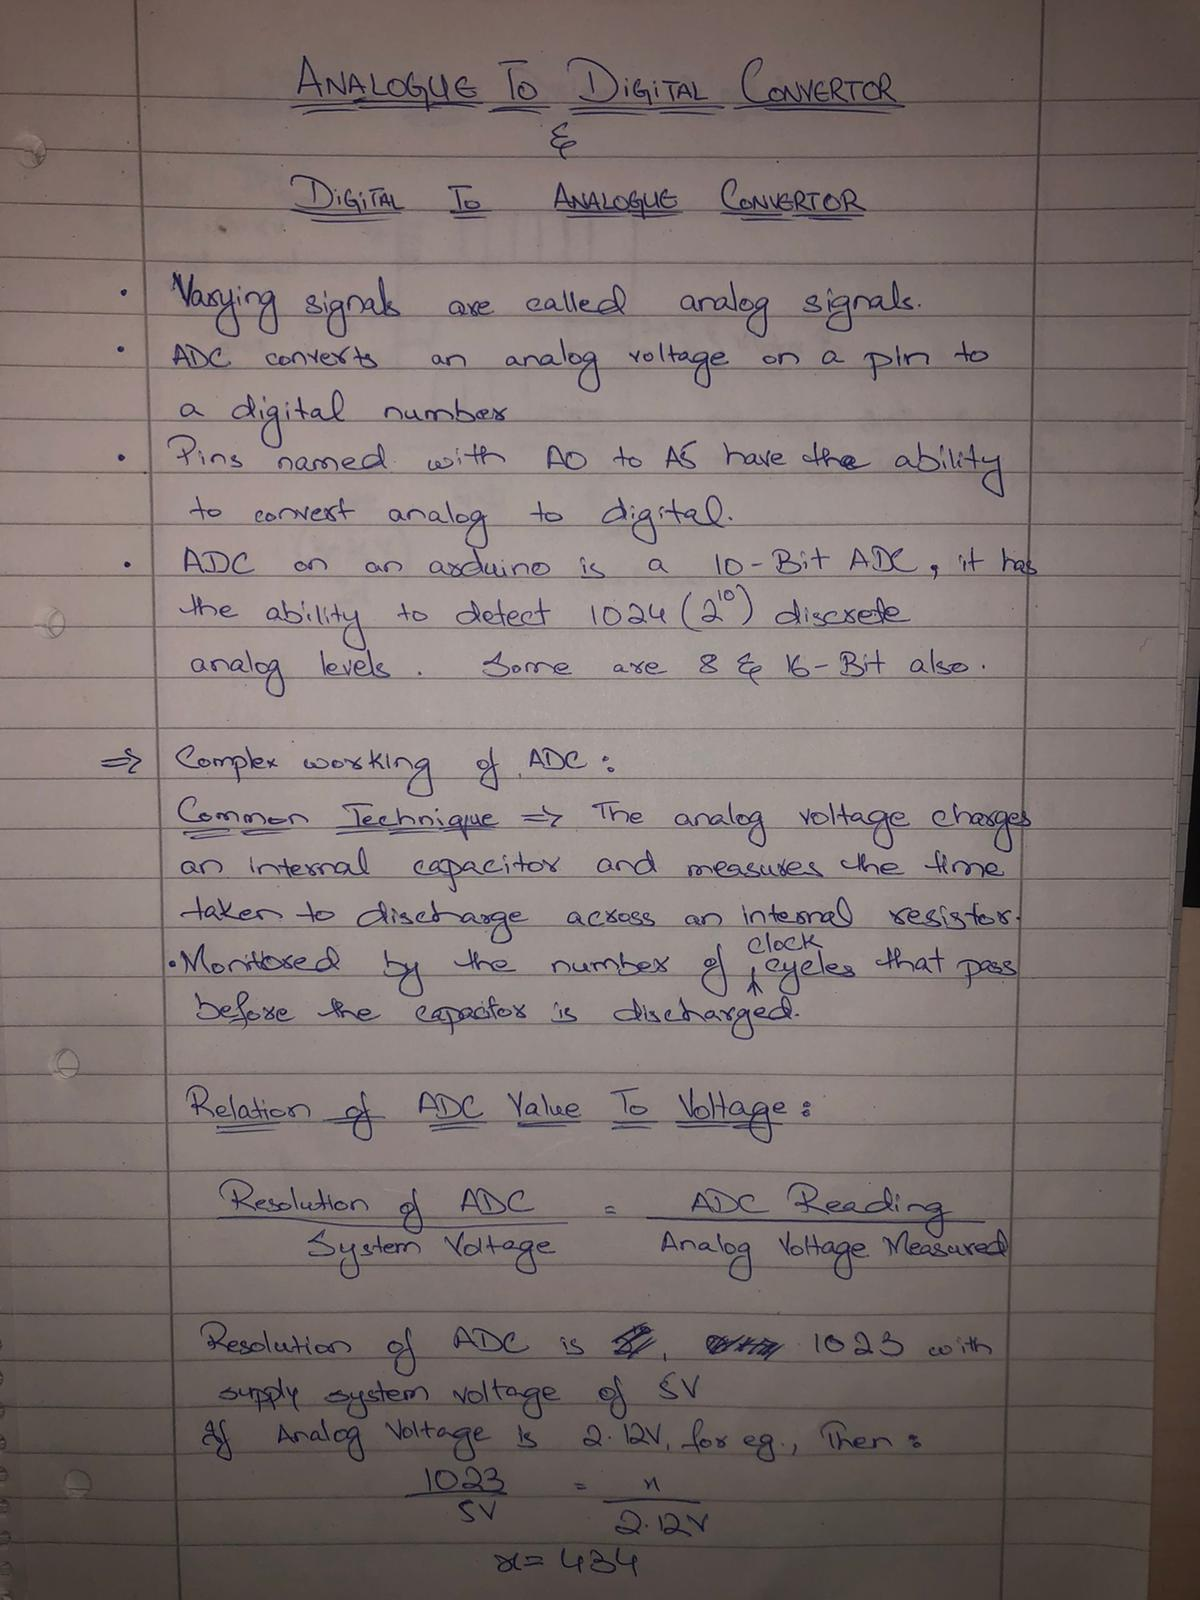 ANALOGUE TO DIGITAL CONVERTOR
&
DIGITAL TO ANALOGUE CONVERTOR
• Varying signals are called analog signals.
• ADC converts an analog voltage on a pin to
a digital number
• Pins named with A0 to A5 have the ability
to convert analog to digital.
• ADC on an arduino is a 10-Bit ADC, it has
the ability to detect 1024 (2¹⁰) discrete
analog levels. Some are 8 & 16-Bit also.
⇒ Complex working of ADC:
Common Technique ⇒ The analog voltage charges
an internal capacitor and measures the time
taken to discharge across an internal resistor.
• Monitored by the number of clock cycles that pass
before the capacitor is discharged.
Relation of ADC Value To Voltage:
Resolution of ADC = ADC Reading
System Voltage Analog Voltage Measured
Resolution of ADC is 1023 with
supply system voltage of 5V
If Analog Voltage is 2.12V, for eg., Then:
1023 = x
5V 2.12V
x = 434